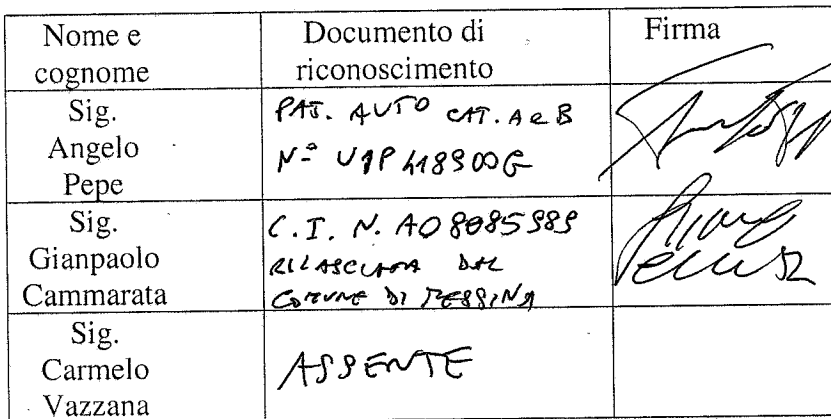 Nome e cognome
Documento di riconoscimento
Firma
Sig. Angelo Pepe
PAT. AUTO CAT. A e B
N.º U1P418900G
Sig. Gianpaolo Cammarata
C.I. N. AO8085989
RILASCIATA DAL
COMUNE DI MESSINA
Sig. Carmelo Vazzana
ASSENTE